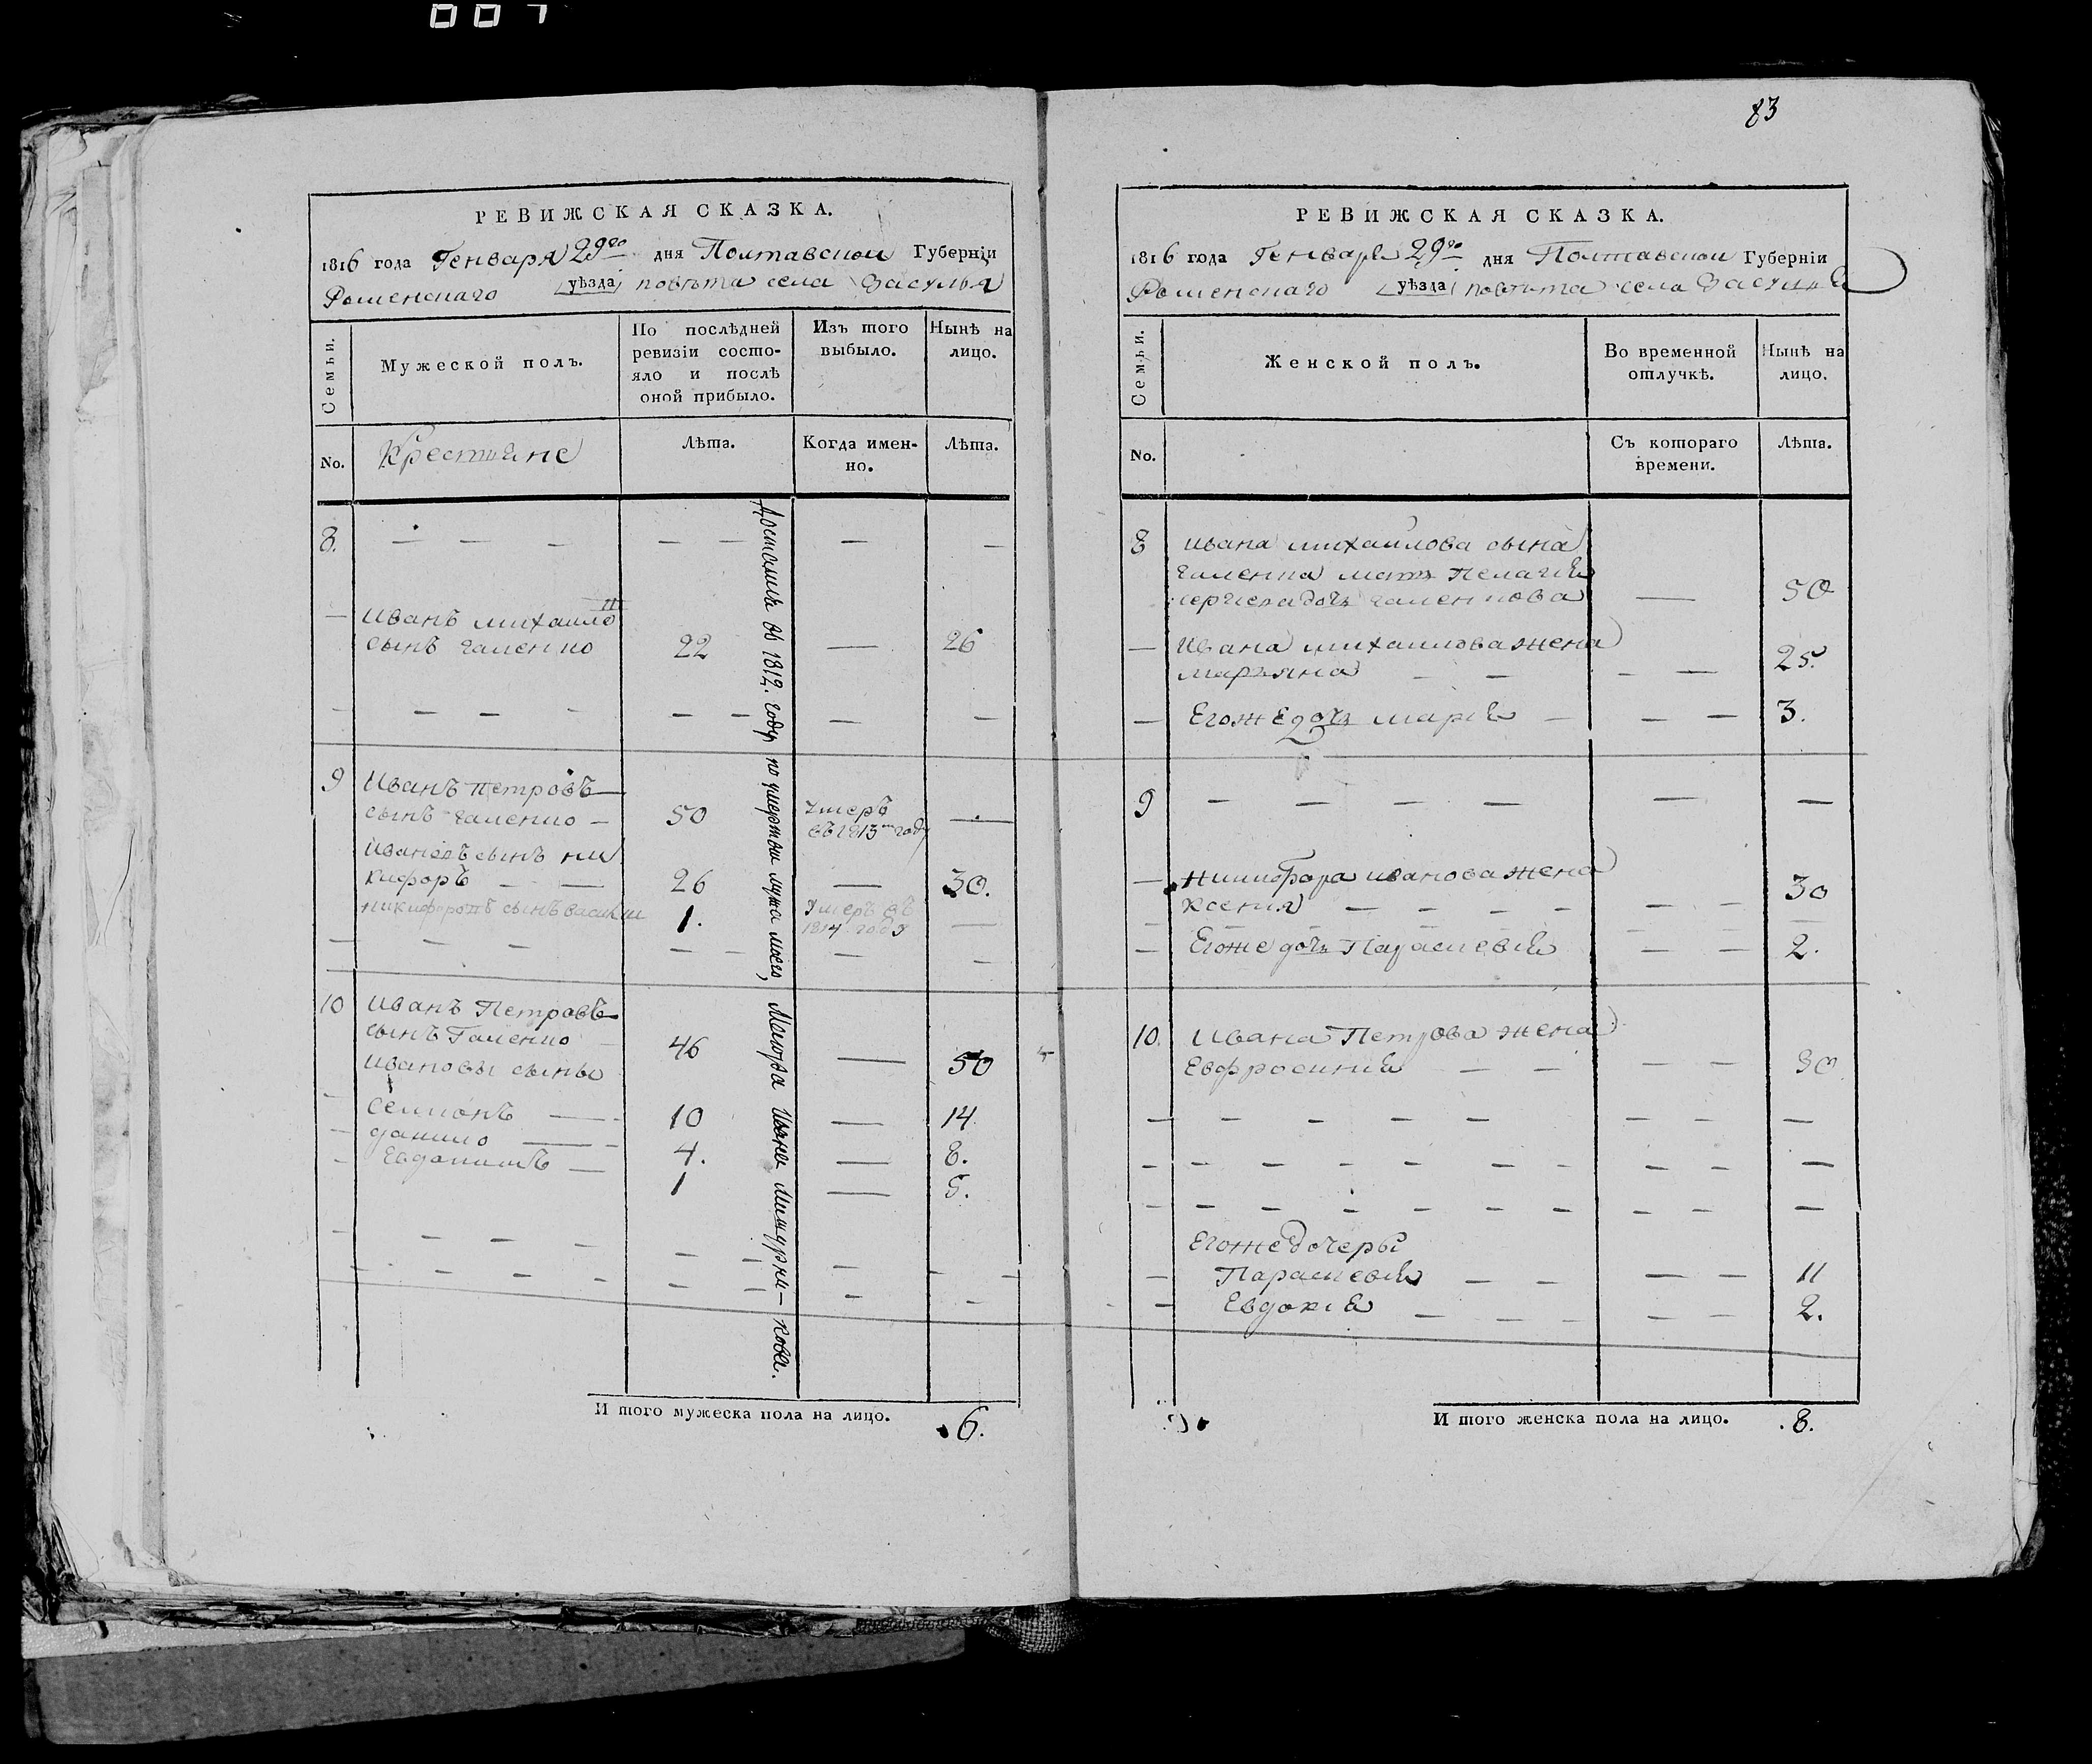 007
83
РЕВИЖСКАЯ СКАЗКА.
1816 года Генваря 29го дня Полтавской Губерніи
Роменскаго уѣзда повѣта села Засулья
Семьи.
Мужеской полъ.
По послѣдней ревизіи состо-
яло и послѣ
оной прибыло.
Изъ того
выбыло.
Нынѣ на
лицо.
No.
Крестьяне
Лѣта.
Когда имен-
но.
Лѣта.
8. — — — — — — —
— Иванъ михаило
сынъ галенко 22 — 26
— — — — — — — —
9 Иванъ Петровъ
сынъ галенко — 50 Умеръ
въ 1813м году —
Ивановъ сынъ ни
кифоръ — — 26 — 30.
никифоровъ сынъ василий 1. Умеръ въ
1814 году —
— — — — — — —
10 Иванъ Петровъ
сынъ Галенко 46 — 50
Ивановы сыны
семионъ — 10 — 14
данило — 4. — 8.
Евдокимъ — 1 — 5.
Достались въ 1812. году по смерти мужа моего, Маиора Ивана Мищурни-кова.
И того мужеска пола на лицо. 6.
РЕВИЖСКАЯ СКАЗКА.
1816 года Генваря 29го дня Полтавской Губерніи
Роменскаго уѣзда повѣта села Засулья
Семьи.
Женской полъ.
Во временной
отлучкѣ.
Нынѣ на
лицо.
No.
Съ котораго
времени.
Лѣта.
8 Ивана михайлова сына
галенка мать Пелагия
дочь галенкова — 50
— Ивана михаилова жена
марьяна — — — — 25.
— Егоже дочь мария — — — 3.
9 — — — — — —
— Никифора иванова жена
ксения — — — — — — 30
— Егоже дочь Параскевия — — 2.
10. Ивана Петрова жена
Евфросиния — — — — 30
— — — — — — — —
— — — — — — — — —
— — — — — — — — —
Егоже дочеры
— Параскевия — — — — 11
— Евдокия — — — — — 2.
И того женска пола на лицо. 8.